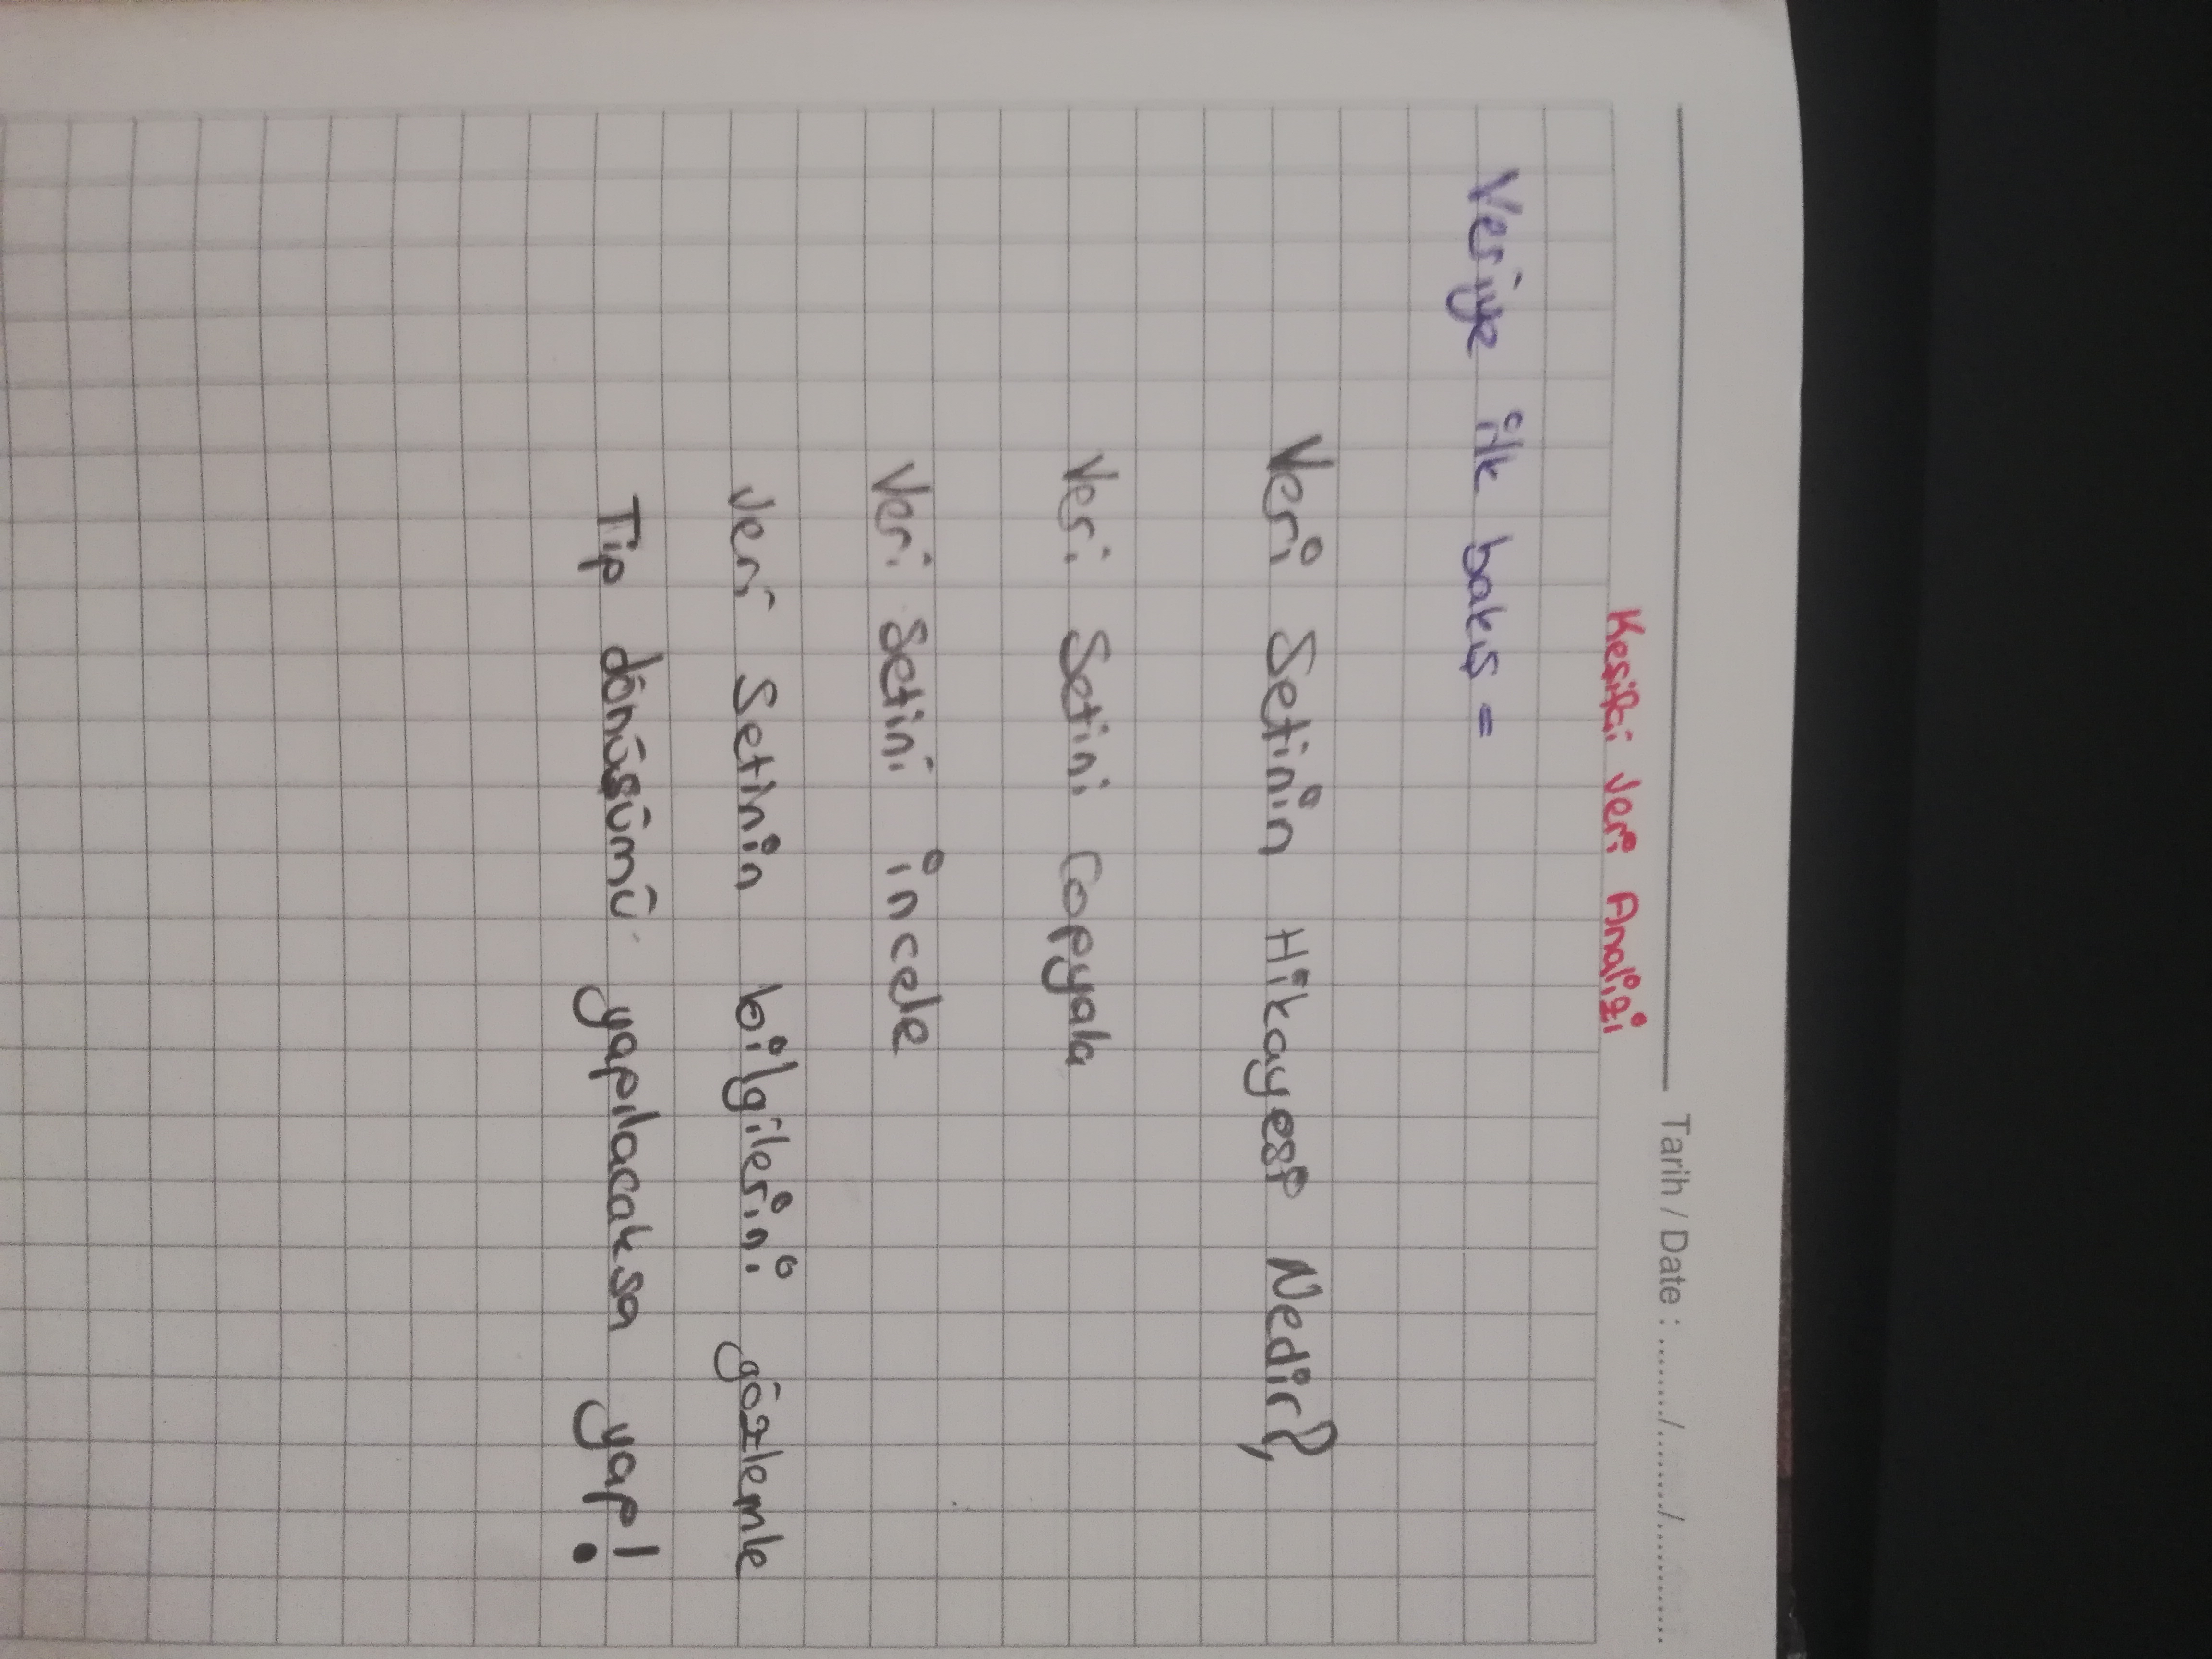 Tarih / Date : ......../......../............
Keşifçi Veri Analizi
Veriye ilk bakış =
Veri Setinin Hikayesi Nedir?
Veri Setini Copyala
Veri Setini incele
Veri Setinin bilgilerini gözlemle
Tip dönüşümü yapılacaksa yap!